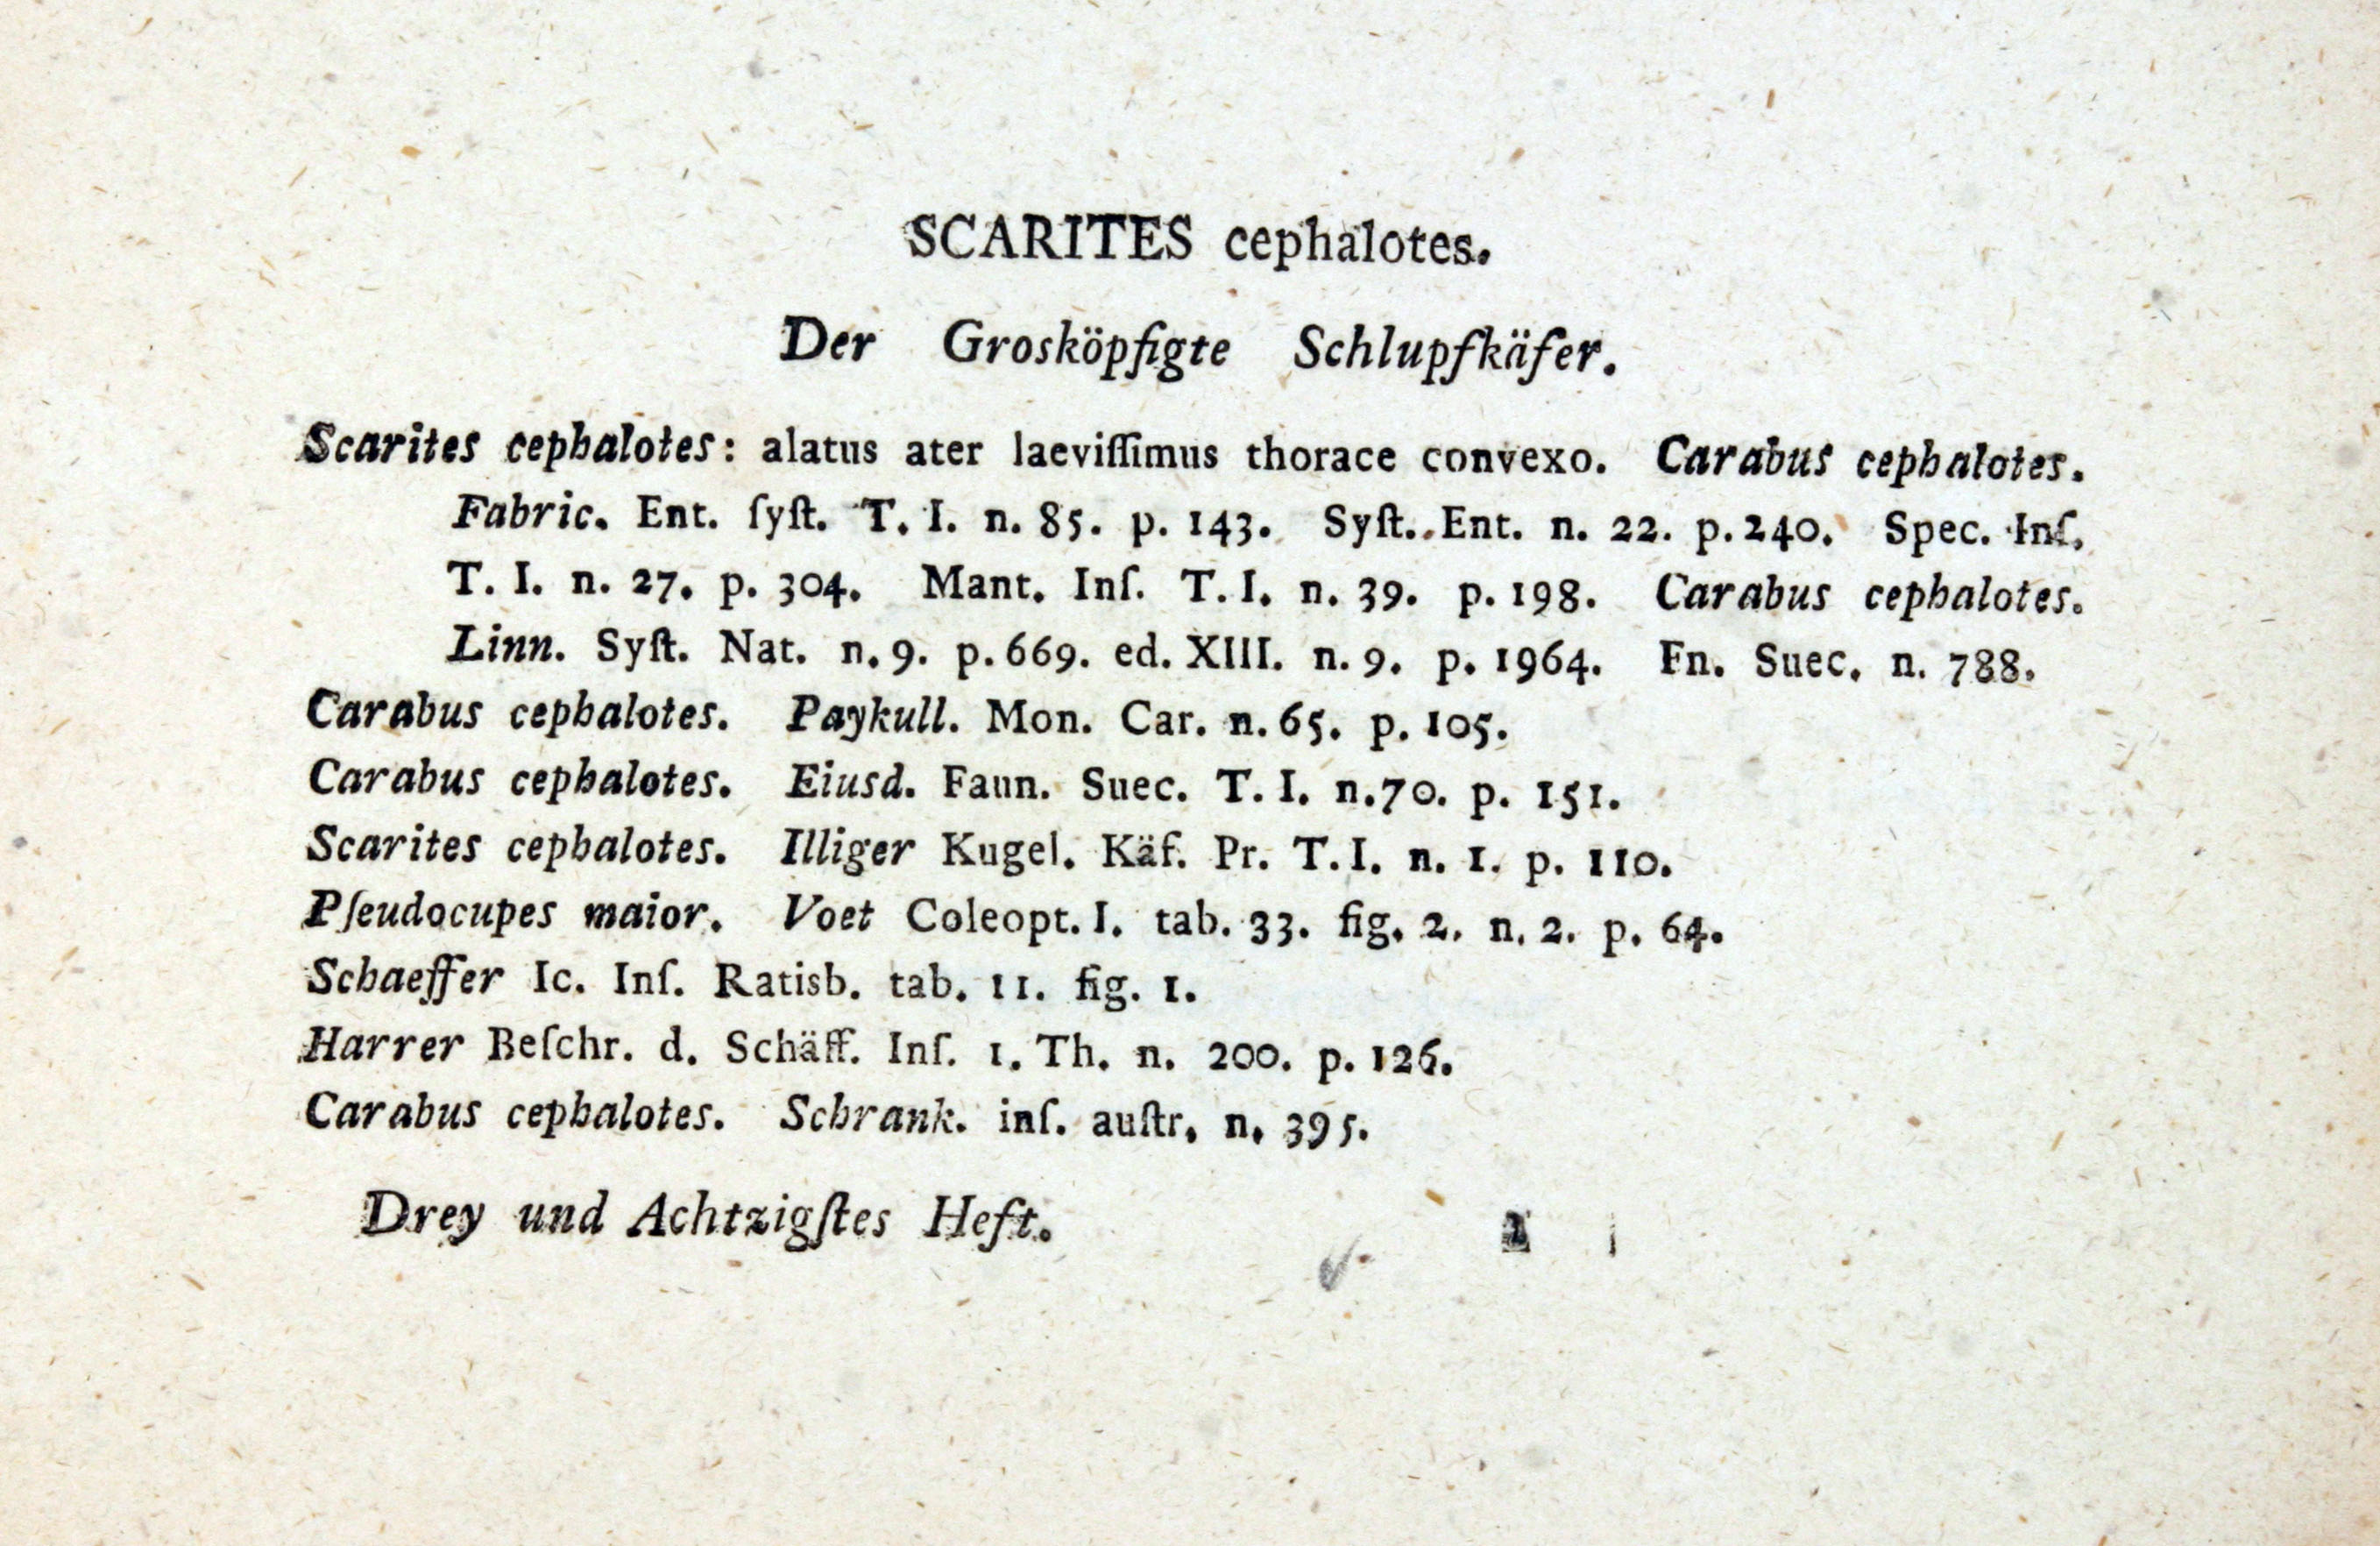 SCARITES cephalotes.
Der Grosköpfigte Schlupfkäfer.
Scarites cephalotes: alatus ater laeviſſimus thorace convexo. Carabus cephalotes.
Fabric. Ent. ſyſt. T. I. n. 85. p. 143. Syſt. Ent. n. 22. p. 240. Spec. Inſ.
T. I. n. 27. p. 304. Mant. Inſ. T. I. n. 39. p. 198. Carabus cephalotes.
Linn. Syſt. Nat. n. 9. p. 669. ed. XIII. n. 9. p. 1964. Fn. Suec. n. 788.
Carabus cephalotes. Paykull. Mon. Car. n. 65. p. 105.
Carabus cephalotes. Eiusd. Faun. Suec. T. I. n. 70. p. 151.
Scarites cephalotes. Illiger Kugel. Käf. Pr. T. I. n. 1. p. 110.
Pſeudocupes maior. Voet Coleopt. I. tab. 33. fig. 2. n. 2. p. 64.
Schaeffer Ic. Inſ. Ratisb. tab. 11. fig. 1.
Harrer Beſchr. d. Schäff. Inſ. 1. Th. n. 200. p. 126.
Carabus cephalotes. Schrank. inſ. auſtr. n. 395.
Drey und Achtzigſtes Heft.